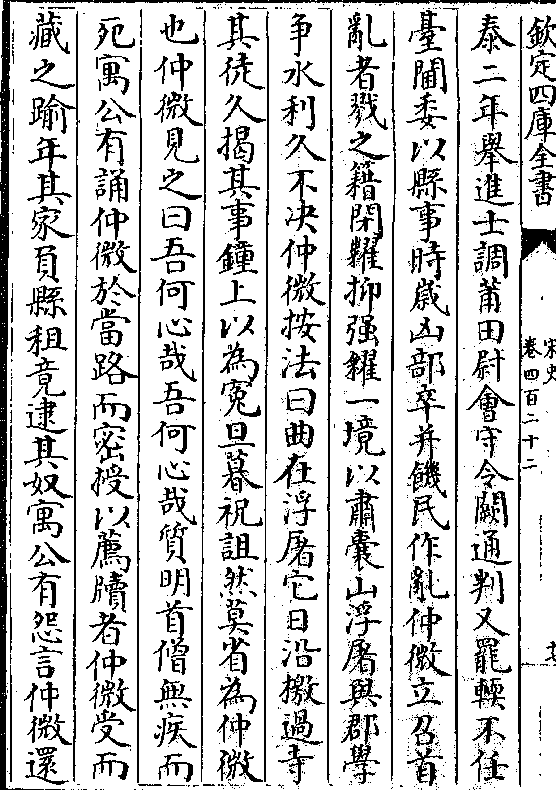 欽定四庫全書
宋史
卷四百二十二
泰二年舉進士調莆田尉會守令闕通判又罷輭不任
臺閫委以縣事時歲凶部卒并饑民作亂仲微立召首
亂者戮之籍閉糶抑强糴一境以肅囊山浮屠與郡學
争水利久不决仲微按法曰曲在浮屠它日沿檄過寺
其徒久揭其事鐘上以為寃旦暮祝詛然莫省為仲微
也仲微見之曰吾何心哉吾何心哉質明首僧無疾而
死寓公有誦仲微於當路而密授以薦牘者仲微受而
藏之踰年其家負縣租竟逮其奴寓公有怨言仲微還